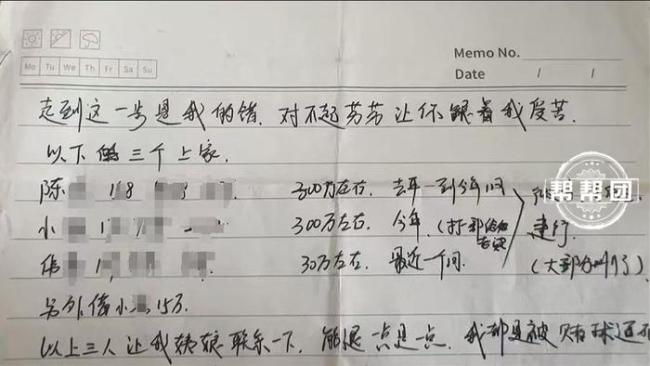 Memo No.
Mo Tu We Th Fr Sa Su
Date / /
走到这一步是我的错. 对不起芳芳让你跟着我受苦.
以下 三个上家.
陈 118 300万左右. 去年一到今年间
小 1 300万左右. 今年. (打一部
伟 1 30万左右. 最近一个间.
建行.
(大部分
另外借小 15万.
以上三人让我姨娘联系一下. 能退一点是一点. 我都是被赌球逼
帮帮团